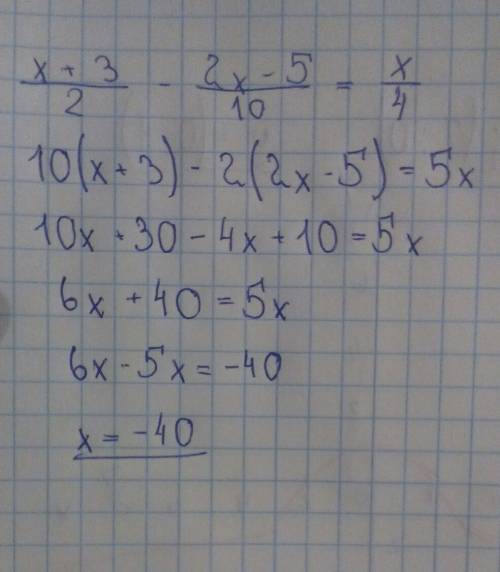 x + 3 / 2 - 2x - 5 / 10 = x / 4
10(x + 3) - 2(2x - 5) = 5x
10x + 30 - 4x + 10 = 5x
6x + 40 = 5x
6x - 5x = -40
x = -40